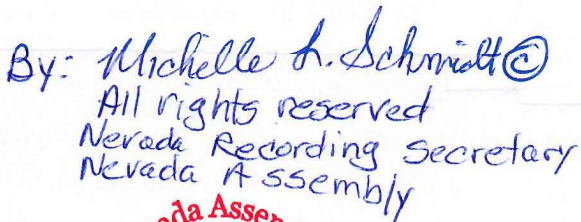 By: Michelle L. Schmidt ©
All rights reserved
Nevada Recording Secretary
Nevada Assembly